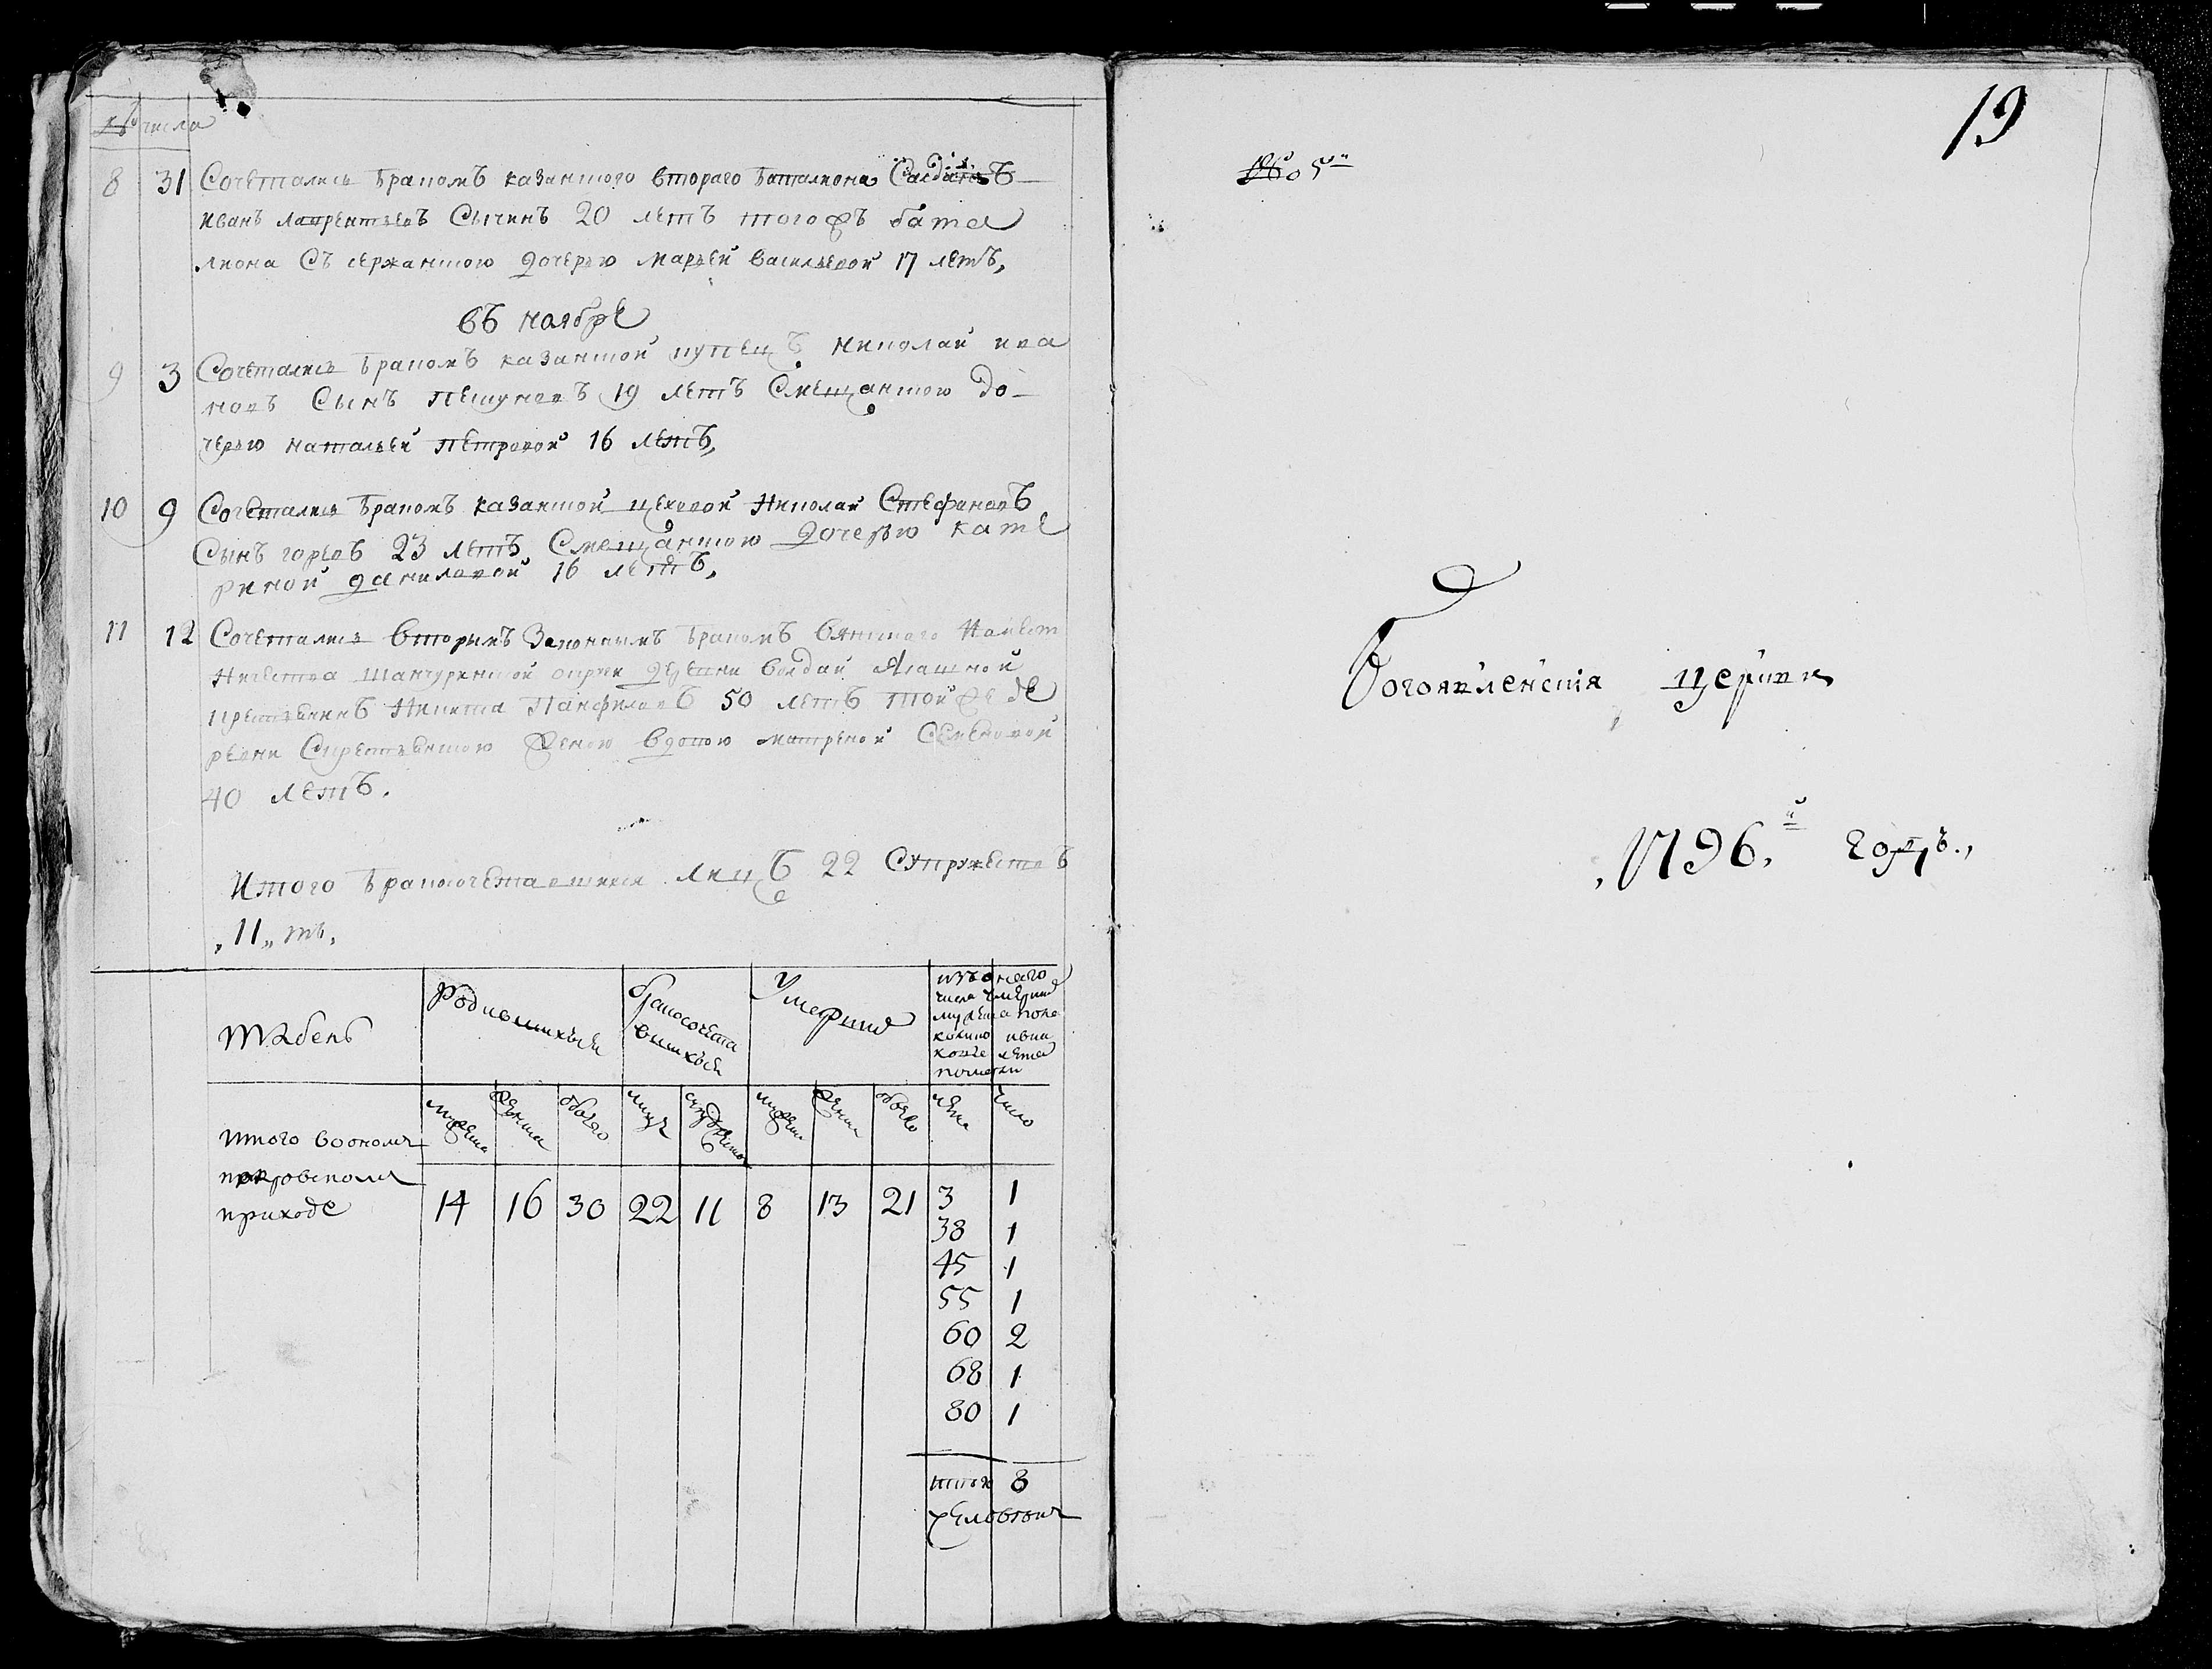 № числа
8 31 Сочетались бракомъ казанского втораго баталиона Салдатъ
иванъ лаврентьевъ Сычинъ 20 летъ тогожъ бата
лиона Съ сержанскою дочерью марьей васильевой 17 летъ,
въ ноябре
9 3 Сочетались бракомъ казанской купецъ николай ива
новъ Сынъ пешуновъ 19 летъ Смещанскою до-
черью натальей петровой 16 летъ,
10 9 Сочетались бракомъ казанской цеховой николай Стефановъ
Сынъ горевъ 23 летъ Смещанскою дочерью кате
риной даниловой 16 летъ,
11 12 Сочетались вторымъ Законнымъ бракомъ вятскаго намест
ничества шанчуринской округи деревни
крестьянинъ никита Панфиловъ 50 летъ той же де
ревни Скрестьянскою женою вдовою матреной Семеновой
40 летъ.
Итого бракосочетавшихся лицъ 22 Супружествъ
„11„ть,
Табель
Родившихься
бракосочета
вшихься
Умерших
изъ онаго
числа умерших
мужеска пола
колико и вкои
лета
итого воономъ
покровскомъ
приходе
мужеска женска обоего лицъ супружествъ мужеска женска обоего лета число
14 16 30 22 11 8 13 21 3 1
38 1
45 1
55 1
60 2
68 1
80 1
итого 8
человекъ
19
№ 5й
Богоявленския церкви
1796.й годъ.,